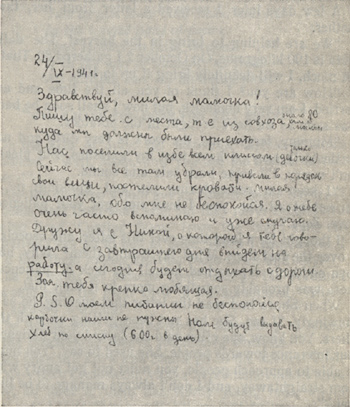 24/IX-1941 г.
Здравствуй, милая мамочка!
Пишу тебе с места, т е из совхоза
куда мы должны были приехать.
Нас поселили в избе всем классом (девочки)
Сейчас мы все там убрали, привели в порядок
свои вещи, постелили кровати. Милая
мамочка, обо мне не беспокойся. Я о тебе
очень часто вспоминаю и уже скучаю.
Дружу я с Никой, о которой я тебе гово-
рила С завтрашнего дня выйдем на
работу, а сегодня будем отдыхать с дороги
Зоя тебя крепко любящая.
P. S. О моем питании не беспокойся,
карточки наши не нужны Нам будут выдавать
хлеб по списку (600г. в день).